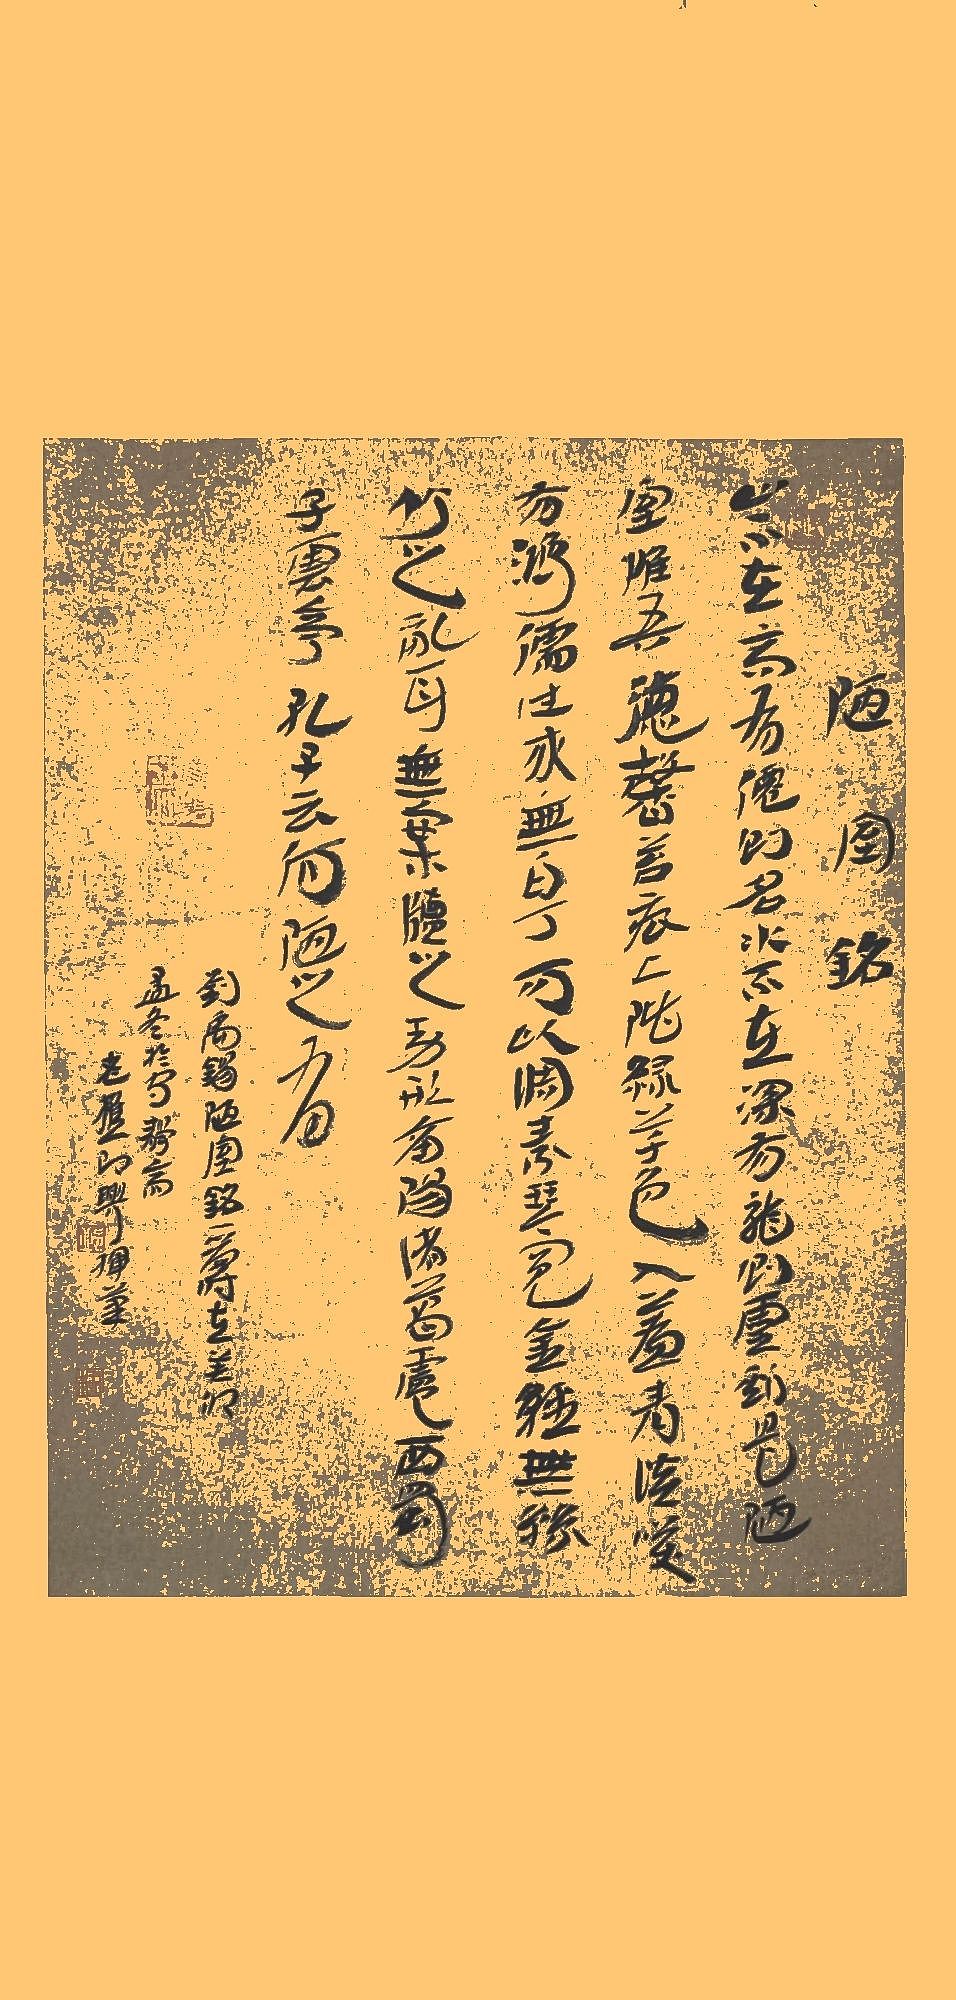 陋室銘
山不在高有僊則名水不在深有龍則靈斯是陋
室惟吾德馨苔痕上階綠草色入簾青談笑
有鴻儒往來無白丁可以調素琴閱金經無絲
竹之亂耳無案牘之勞形南陽諸葛廬西蜀
子雲亭孔子云何陋之有
劉禹錫陋室銘歲在癸卯
孟冬於守靜齋
老樵即興揮筆